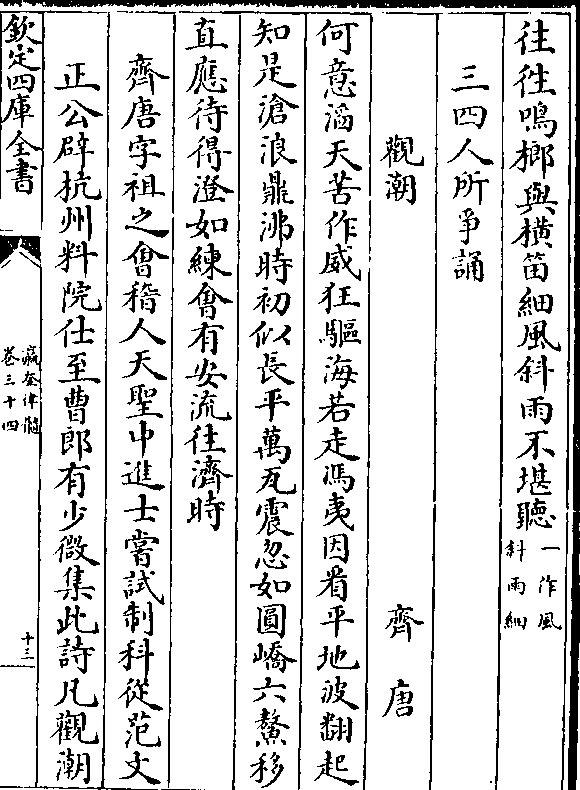 往徃鳴榔與橫笛細風斜雨不堪聽
一作風
斜雨細
三四人所爭誦
觀潮
齊唐
何意滔天苦作威狂驅海若走馮夷因看平地波翻起
知是滄浪鼎沸時初似長平萬瓦震忽如圓嶠六鰲移
直應待得澄如練會有安流往濟時
齊唐字祖之會稽人天聖中進士嘗試制科從范文
正公辟杭州料院仕至曹郎有少微集此詩凡觀潮
欽定四庫全書
瀛奎律髓
卷三十四
十三